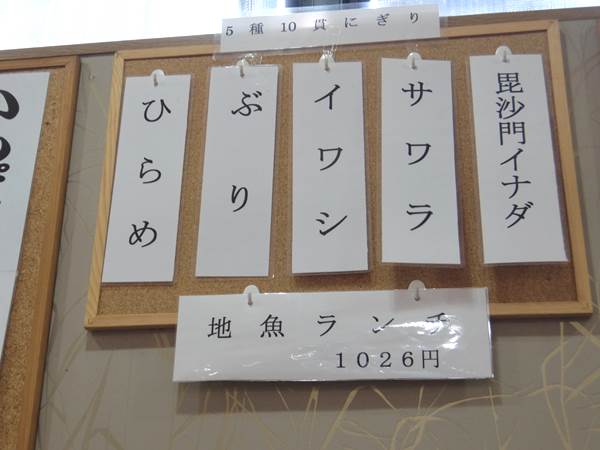 ５種１０貫にぎり
毘沙門イナダ
サワラ
イワシ
ぶり
ひらめ
地魚ランチ
１０２６円